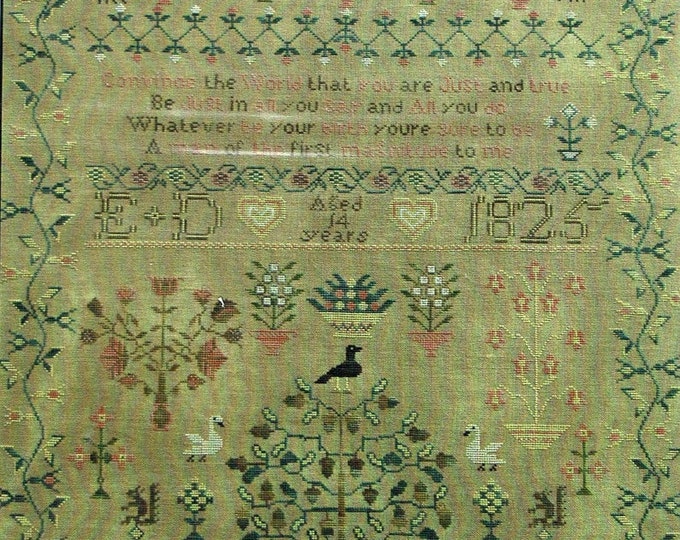 Convince the World that you are Just and true
Be Just in all you Say and All you do
Whatever be your Birth youre sure to be
A man of the first magnitude to me
E + D
Aged
14
years
1825